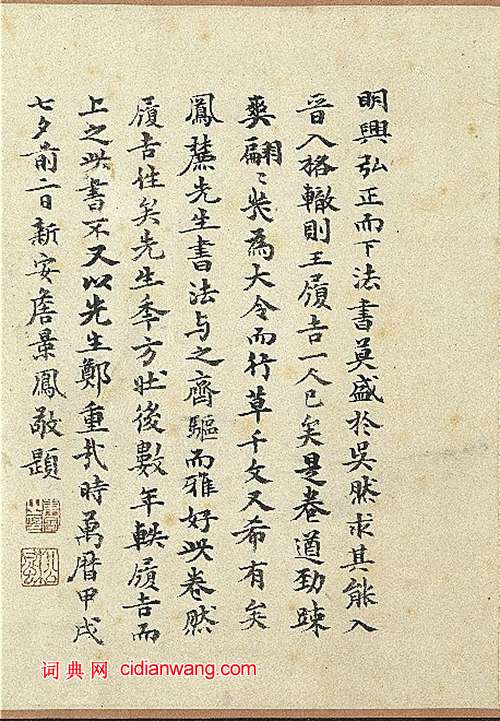 明興弘正而下法書莫盛於吳然求其能入
晉人格轍則王履吉一人已矣是卷遒勁踈
爽翩〻為大令而行草千文又希有矣
鳳麓先生書法与之齊驅而雅好此卷然
履吉往矣先生年方壯後數年軼履吉而
上之此書不又以先生鄭重哉時萬曆甲戌
七夕前二日新安詹景鳳敬題
词典网 cidianwang.com